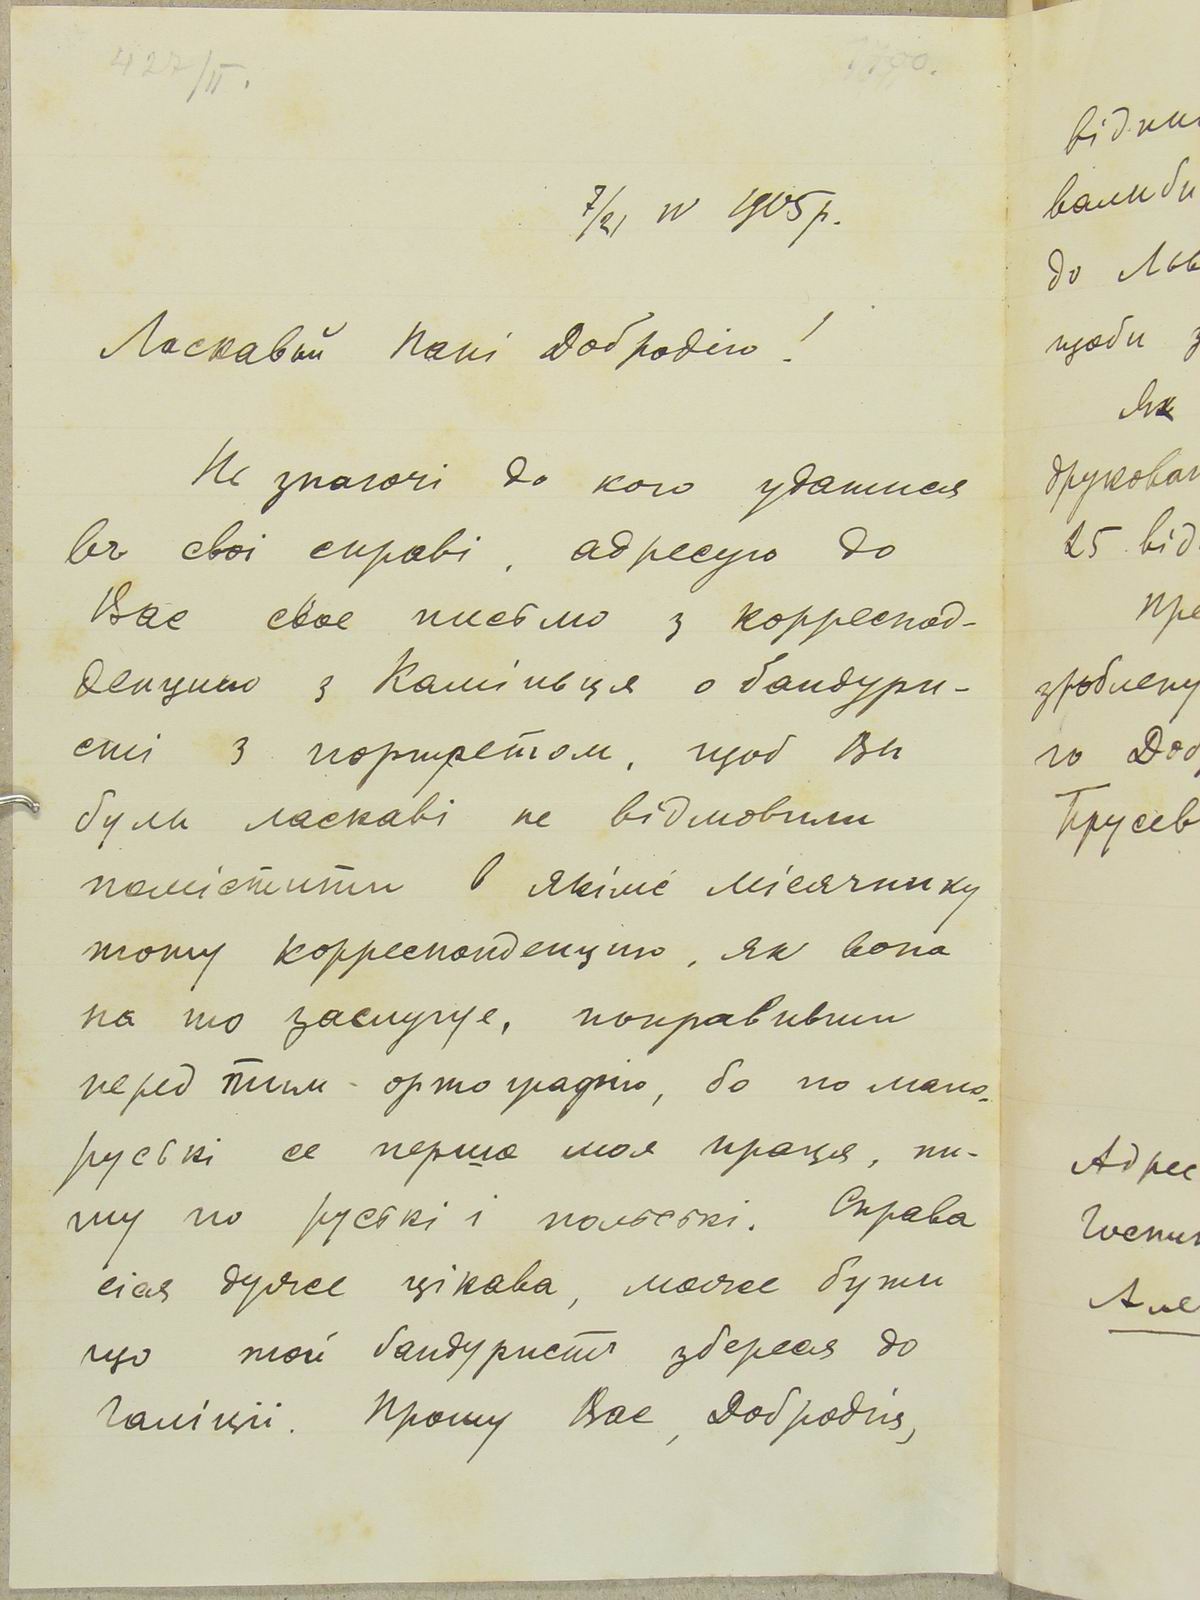 427/II.
1790.
7/21 IV 1905 р.
Ласкавий Пані Добродію!
Не знаючі до кого удатися
въ своі справі, адресую до
Вас своє письмо з корреспод-
денцию з Каміньця о бандури-
сті з портретом, щоб Ви
були ласкаві не відмовили
помістити в якімсь місячнику
тоту корреспонденцию, як вона
на то заслугує, поправивши
перед тим ортографію, бо по мало-
руські се перша моя праця, пи-
шу по руські і польські. Справа
сіся дуже цікава, може бути
що той бандуристъ збереся до
Галіціі. Прошу Вас, Добродія,
до
щоби з
Як
друкован
25 від
пре
зроблену
го Доб
Трусев
Адрес